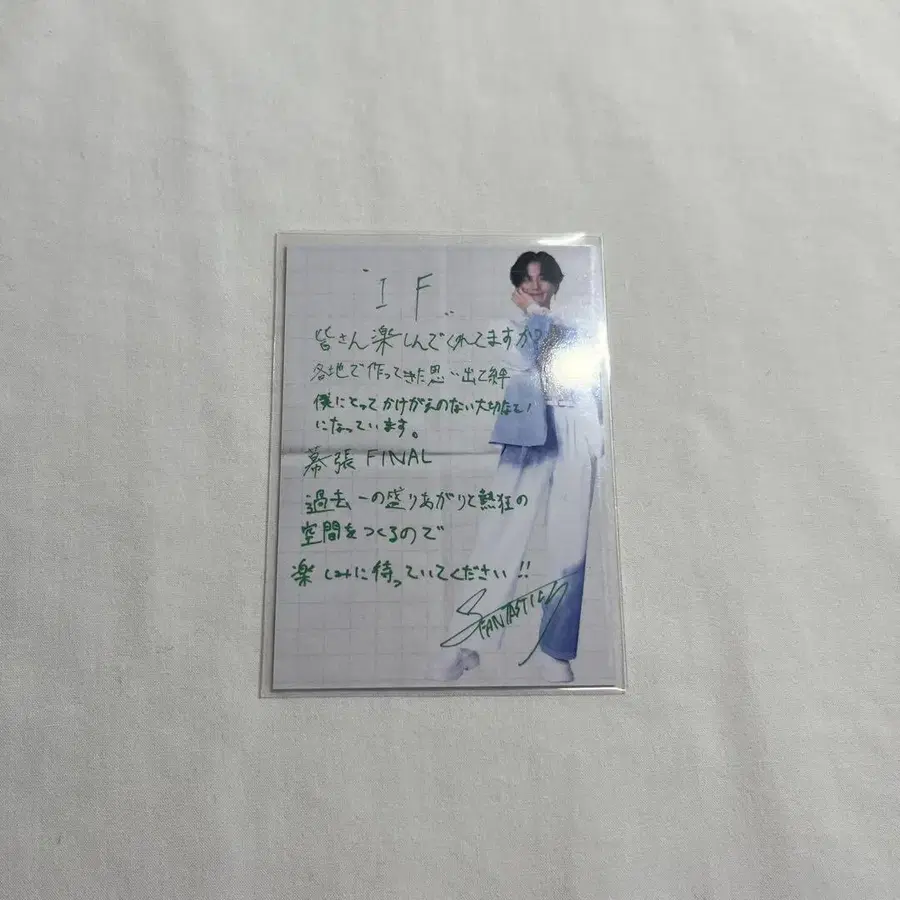 "IF"
皆さん楽しんでくれてますか?
各地で作ってきた思い出て絆
僕にとってかけがえのない大切な
になっています。
幕張 FINAL
過去一の盛りあがりと熱狂の
空間をつくるので
楽しみに待っていてください!!
FANTASTICS